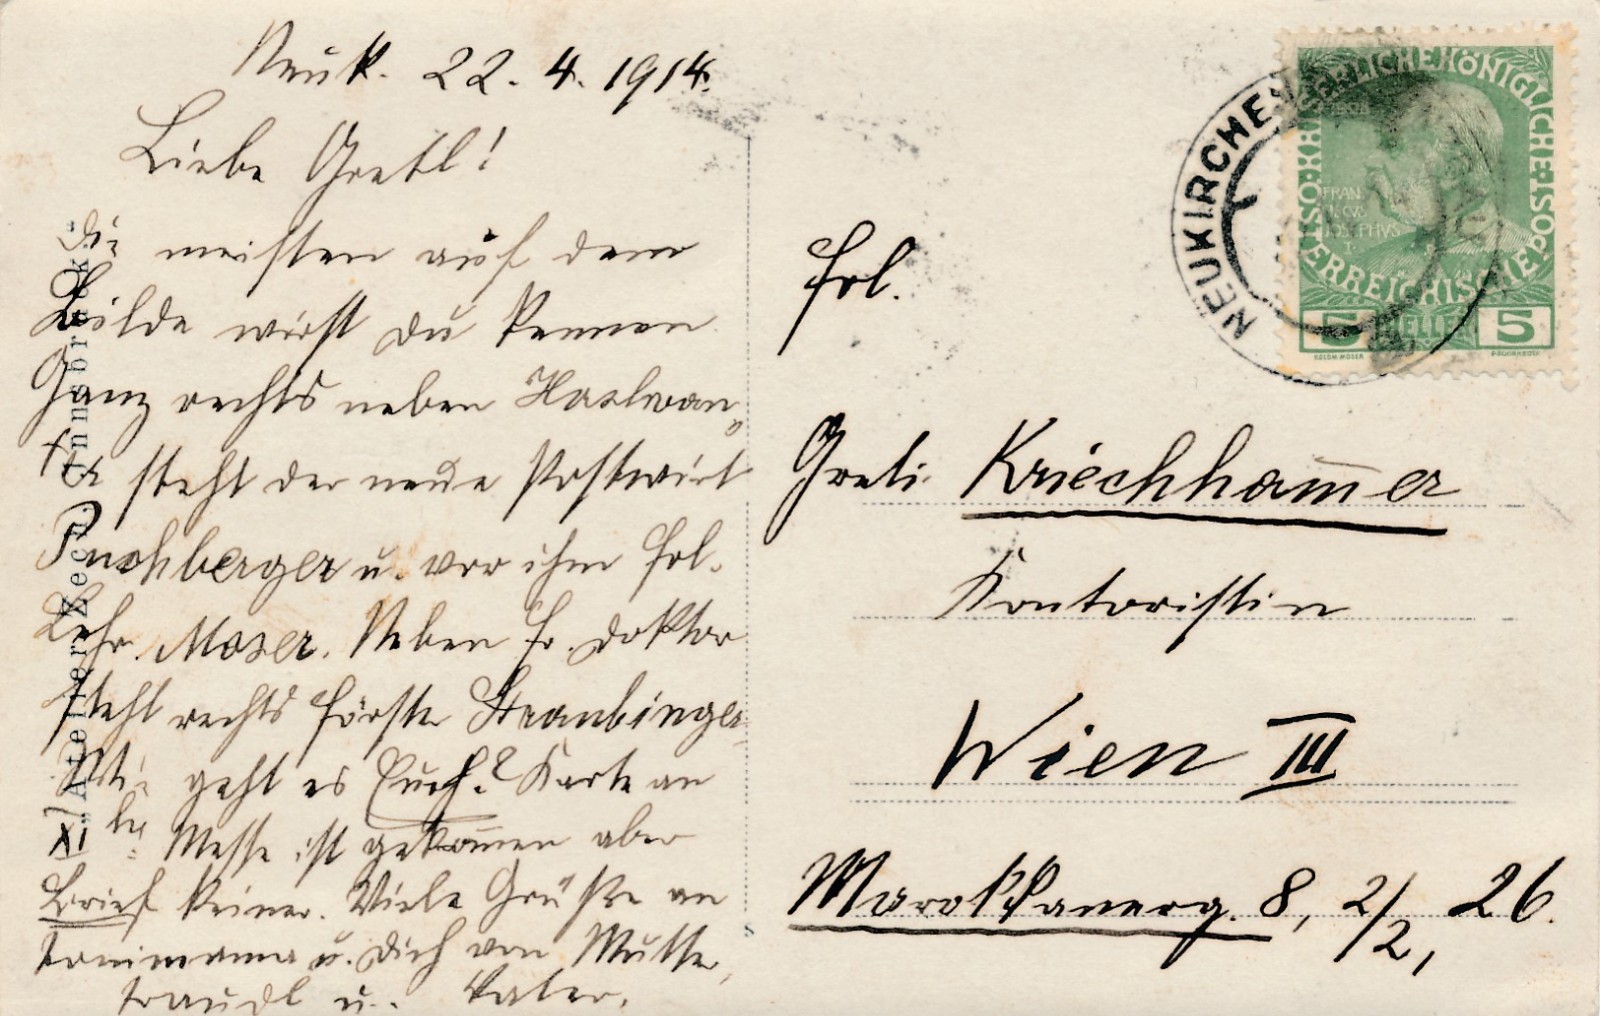 Neuk. 22. 4. 1914.
Liebe Gretl!
Die meisten auf dem
Bilde wirst du kennen
Ganz rechts neben Haslwan-
ter steht der neue Postwirt
Puchberger u. vor ihm Frl.
Lehr. Moser. Neben Fr. Doktor
steht rechts Förster Straubinger
Wie geht es Euch? Karte an
Messe ist gekom̅en aber
Brief keiner. Viele Grüße an
Tonimama u. Dich von Mutter,
Traudl u. Vater.
Atelier Innsbruck
Frl.
Greti Kriechham̅er
Kontoristin
Wien III
Marokkanerg. 8, 2/2, 26.
NEUKIRCHEN
KAISERLICHE KÖNIGLICHE ÖSTERREICHISCHE POST
1908
FRAN
CVS
IOSEPHVS
5 HELLER 5
KOLOM. MOSER